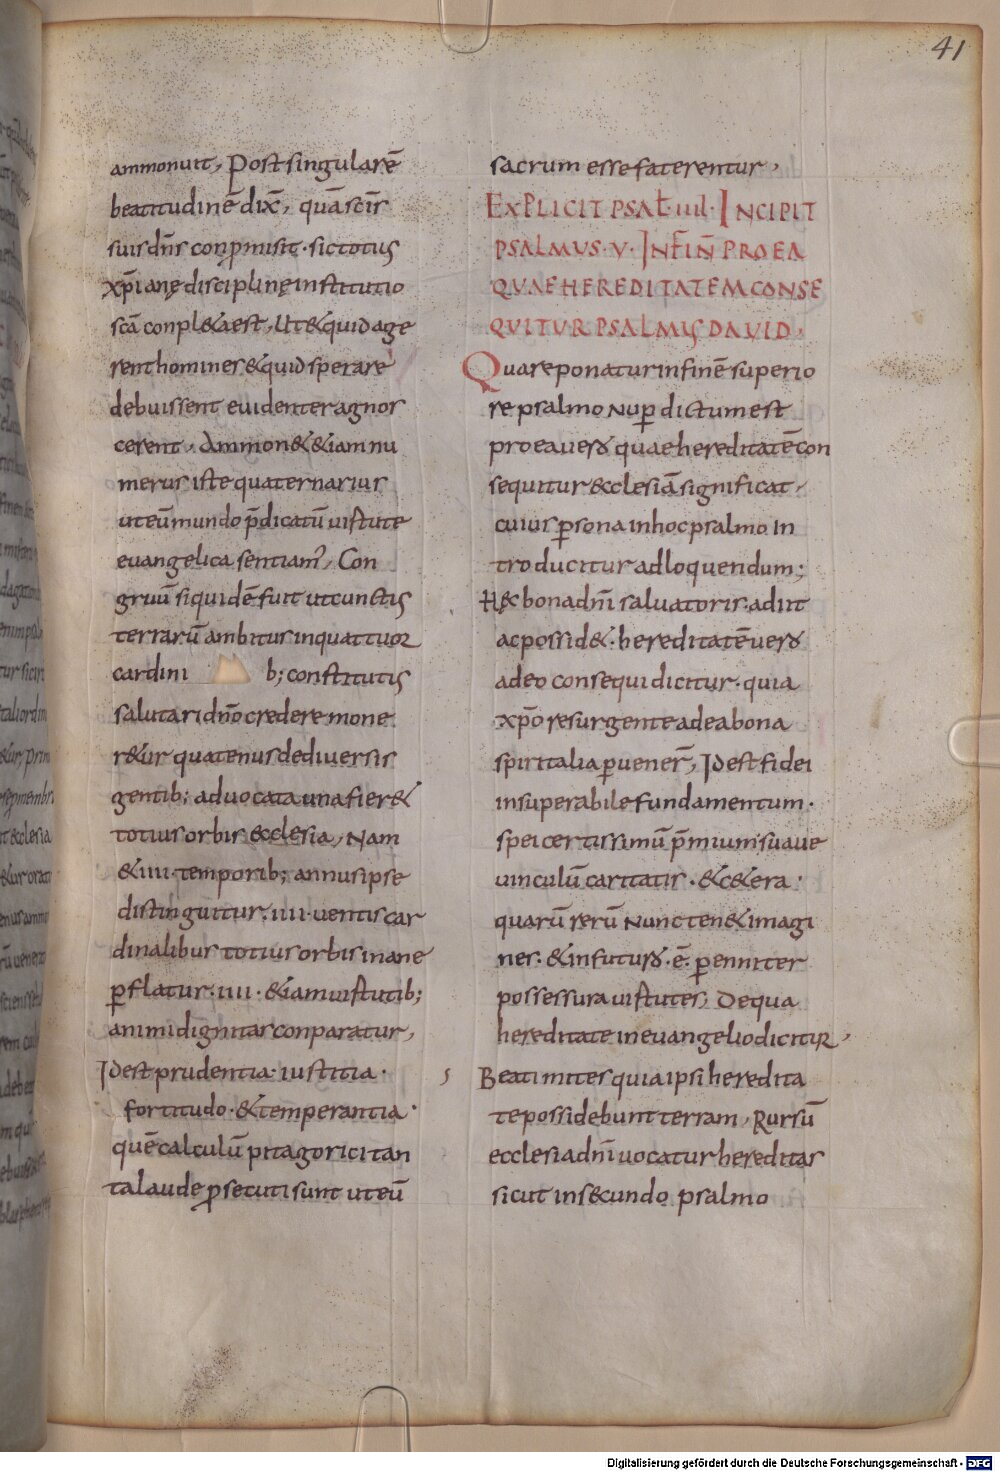 41
ammonuit, Postsingularē
beatitudinē dix̄, quā scīs
suis dn̄s conpmisit · sic totus
xp̄ianę disciplinę institutio
scā conpl&a est, Ut & quid age
rent homines & quid sperare
debuissent euidenter agnos
cerent, Ammon& &iam nu
merus iste quaternarius
ut eū mundo p̄dicatū uirtute
euangelica sentiam', Con
gruū siquidē fuit ut cunctis
terrarū ambitus in quattuor
cardini b; constitutis
salutari dn̄o credere mone
r&ur quatenus de diuersis
gentib; aduocata una fier&
totius orbis ecclesia, Nam
& iiii · temporib; annus ipse
distinguitur · iiii · uentis car
dinalibus totius orbis inane
pflatur · iiii · &iam uirtutib;
animi dignitas conparatur,
Idest prudentia · iustitia ·
fortitudo · & temperantia ·
quē calculū pitagorici tan
ta laude psecuti sunt ut eū
sacrum esse faterentur,
EXPLICIT PSAL̄ · IIII · INCIPIT
PSALMUS · V · IN FIN̄ PRO EA
QUAE HEREDITATEM CONSE
QUITUR PSALMUS DAUID,
Quare ponatur in finē superio
re psalmo nup dictum est
pro ea uero quae hereditatē con
sequitur ecclesiā significat,
cuius psona in hoc psalmo in
troducitur ad loquendum;
Hęc bona dn̄i saluatoris · adiit
ac possid& · hereditatē uero
adeo consequi dicitur · quia
xp̄o resurgente ad ea bona
spiritalia puener̄, Idest fidei
insuperabile fundamentum ·
spei certissimū p̄mium suaue
uinculū caritatis · & c&era ·
quarū rerū nunc ten& imagi
nes · & in futuro · ē · penniter
possessura uirtutes, De qua
hereditate in euangelio dicitur,
Beati mites quia ipsi heredita
te possidebunt terram, Rursū
ecclesia dn̄i uocatur hereditas
sicut in secundo psalmo
Digitalisierung gefördert durch die Deutsche Forschungsgemeinschaft - DFG